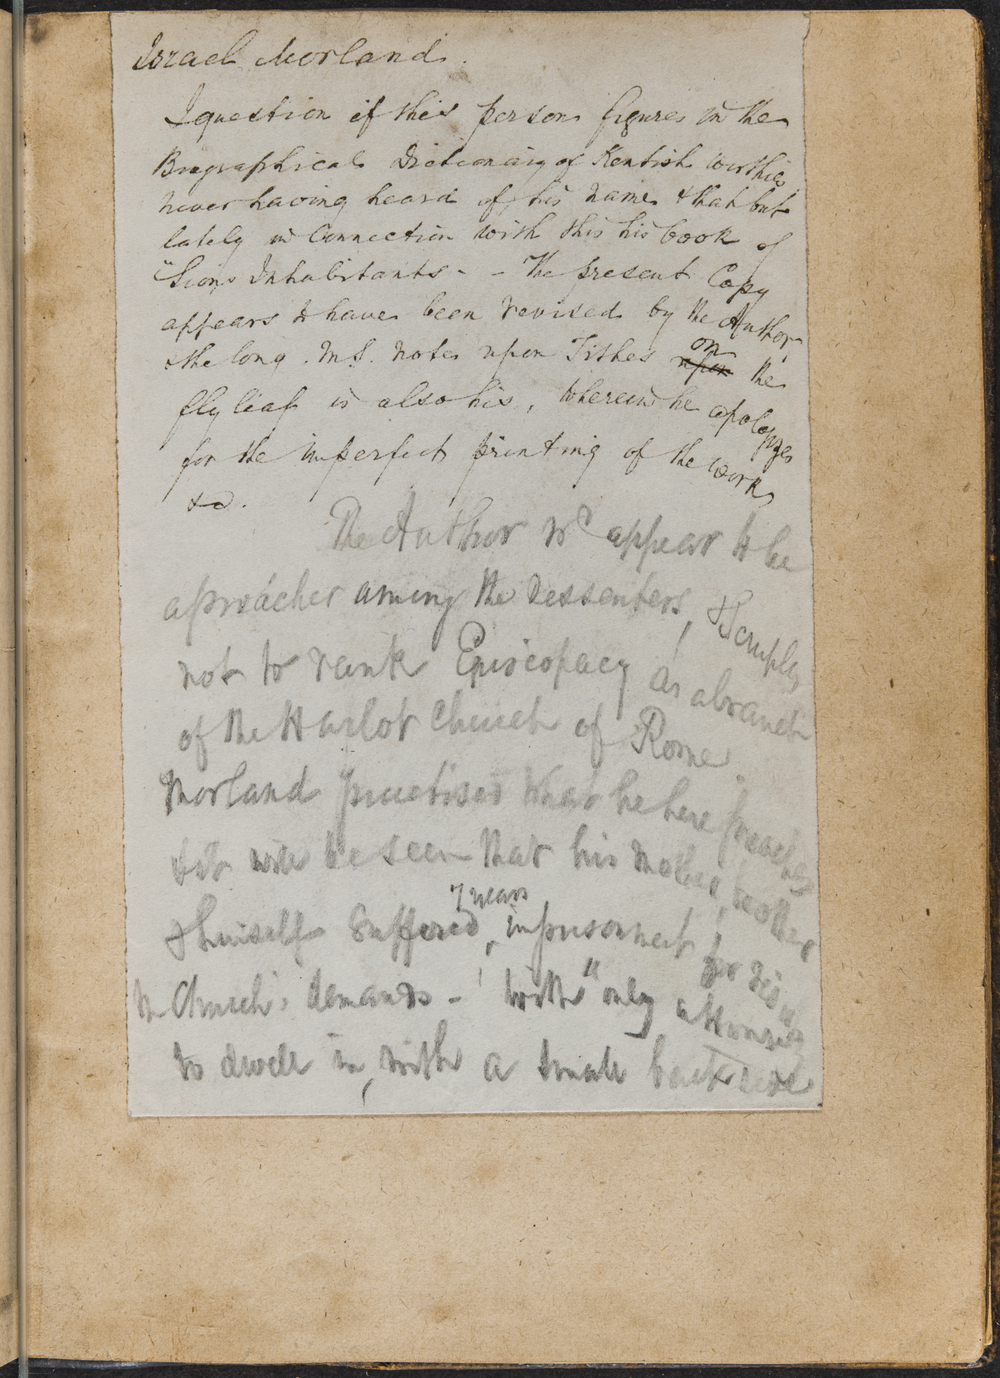 Israel Morland.
I question if this person figures in the
Biographical Dictionary of Kentish Worthies
never having heard of his name & that but
lately in Connection with this his book of
"Sions Inhabitants - - The present Copy
appears to have been revised by the Author,
& the long M.S. notes upon Tithes upon on the
fly leaf is also his, wherein he apologizes
for the imperfect printing of the work,
&c.
The Author wd appear to be
a proacher among the Dessenters, & Scruples
not to rank Episcopacy as a branch
of the Harlot Church of Rome
Morland practised what he here preaches
& it will be seen that his Mother, brother
& himself Suffered, 7 years imprisonment for
the Church's demands - with "only a House
to dwell in, with a small backside